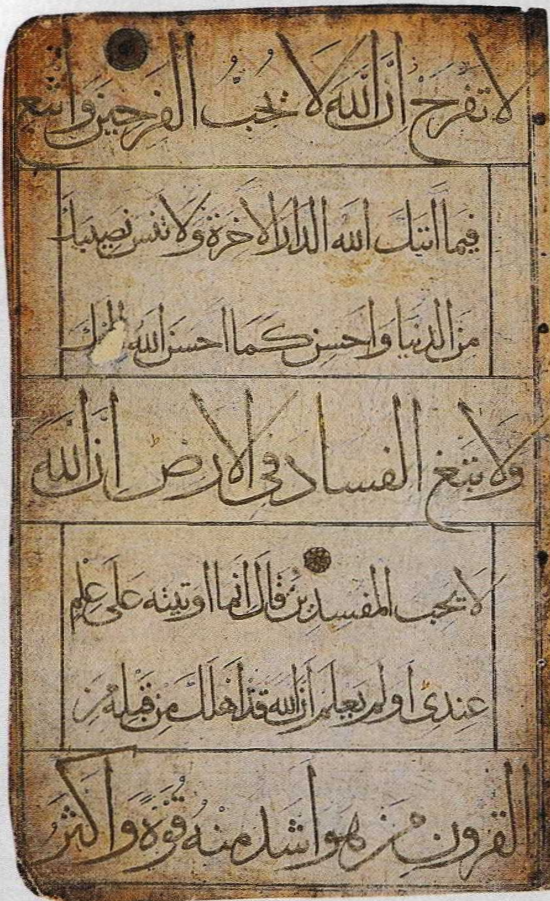 لا تفرح إن الله لا يحب الفرحين وابتغ
فيما اتىك الله الدار الاخرة ولا تنس نصيبك
من الدنيا واحسن كما احسن الله اليك
ولا تبغ الفساد في الارض ان الله
لا يحب المفسدين قال انما اوتيته على علم
عندي او لم يعلم ان الله قد اهلك من قبله من
القرون من هو اشد منه قوة واكثر